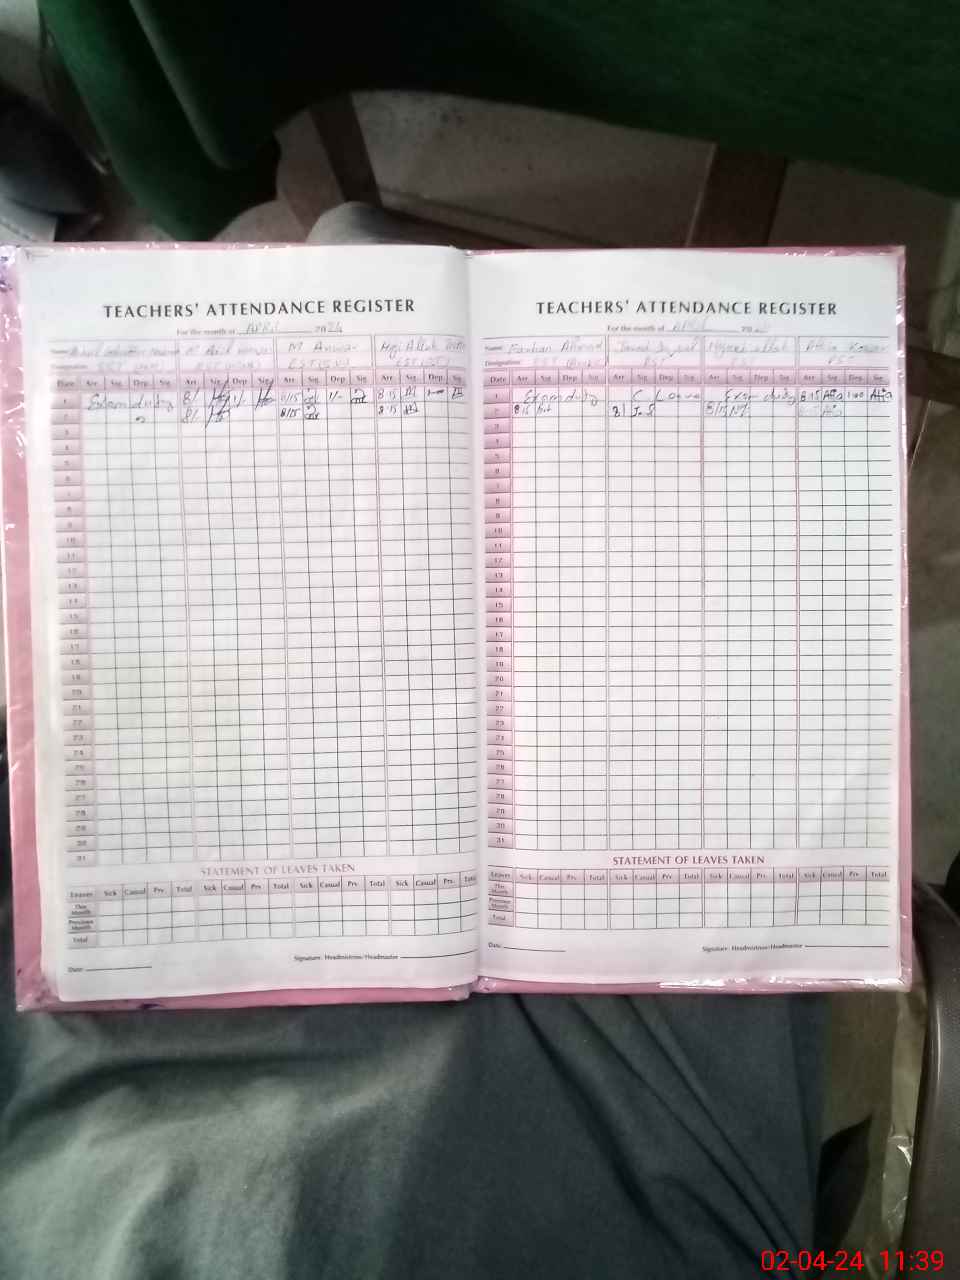 TEACHERS' ATTENDANCE REGISTER
For the month of APRIL 2024
Name M Anwar
Designation
Date Arr Sig Dep Sig Arr Sig Dep Sig Arr Sig Dep Sig Arr Sig Dep Sig
1 Exam duty 8/ 1/- 8/15 1/- 8 15
2 8/ 8/15 8 15
3
4
5
6
7
8
9
10
11
12
13
14
15
16
17
18
19
20
21
22
23
24
25
26
27
28
29
30
31
STATEMENT OF LEAVES TAKEN
Leaves Sick Casual Prv. Total Sick Casual Prv. Total Sick Casual Prv. Total Sick Casual Prv. Total
This Month
Previous Month
Total
Date: Signature: Headmistress/Headmaster
TEACHERS' ATTENDANCE REGISTER
For the month of APRIL 20
Name Farhan Ahmad
Designation
Date Arr Sig Dep Sig Arr Sig Dep Sig Arr Sig Dep Sig Arr Sig Dep Sig
1 Exam duty C Leave Exam duty 8 15 1:00
2 8 15 8/ 8/15
3
4
5
6
7
8
9
10
11
12
13
14
15
16
17
18
19
20
21
22
23
24
25
26
27
28
29
30
31
STATEMENT OF LEAVES TAKEN
Leaves Sick Casual Prv. Total Sick Casual Prv. Total Sick Casual Prv. Total Sick Casual Prv. Total
This Month
Previous Month
Total
Date: Signature: Headmistress/Headmaster
02-04-24 11:39